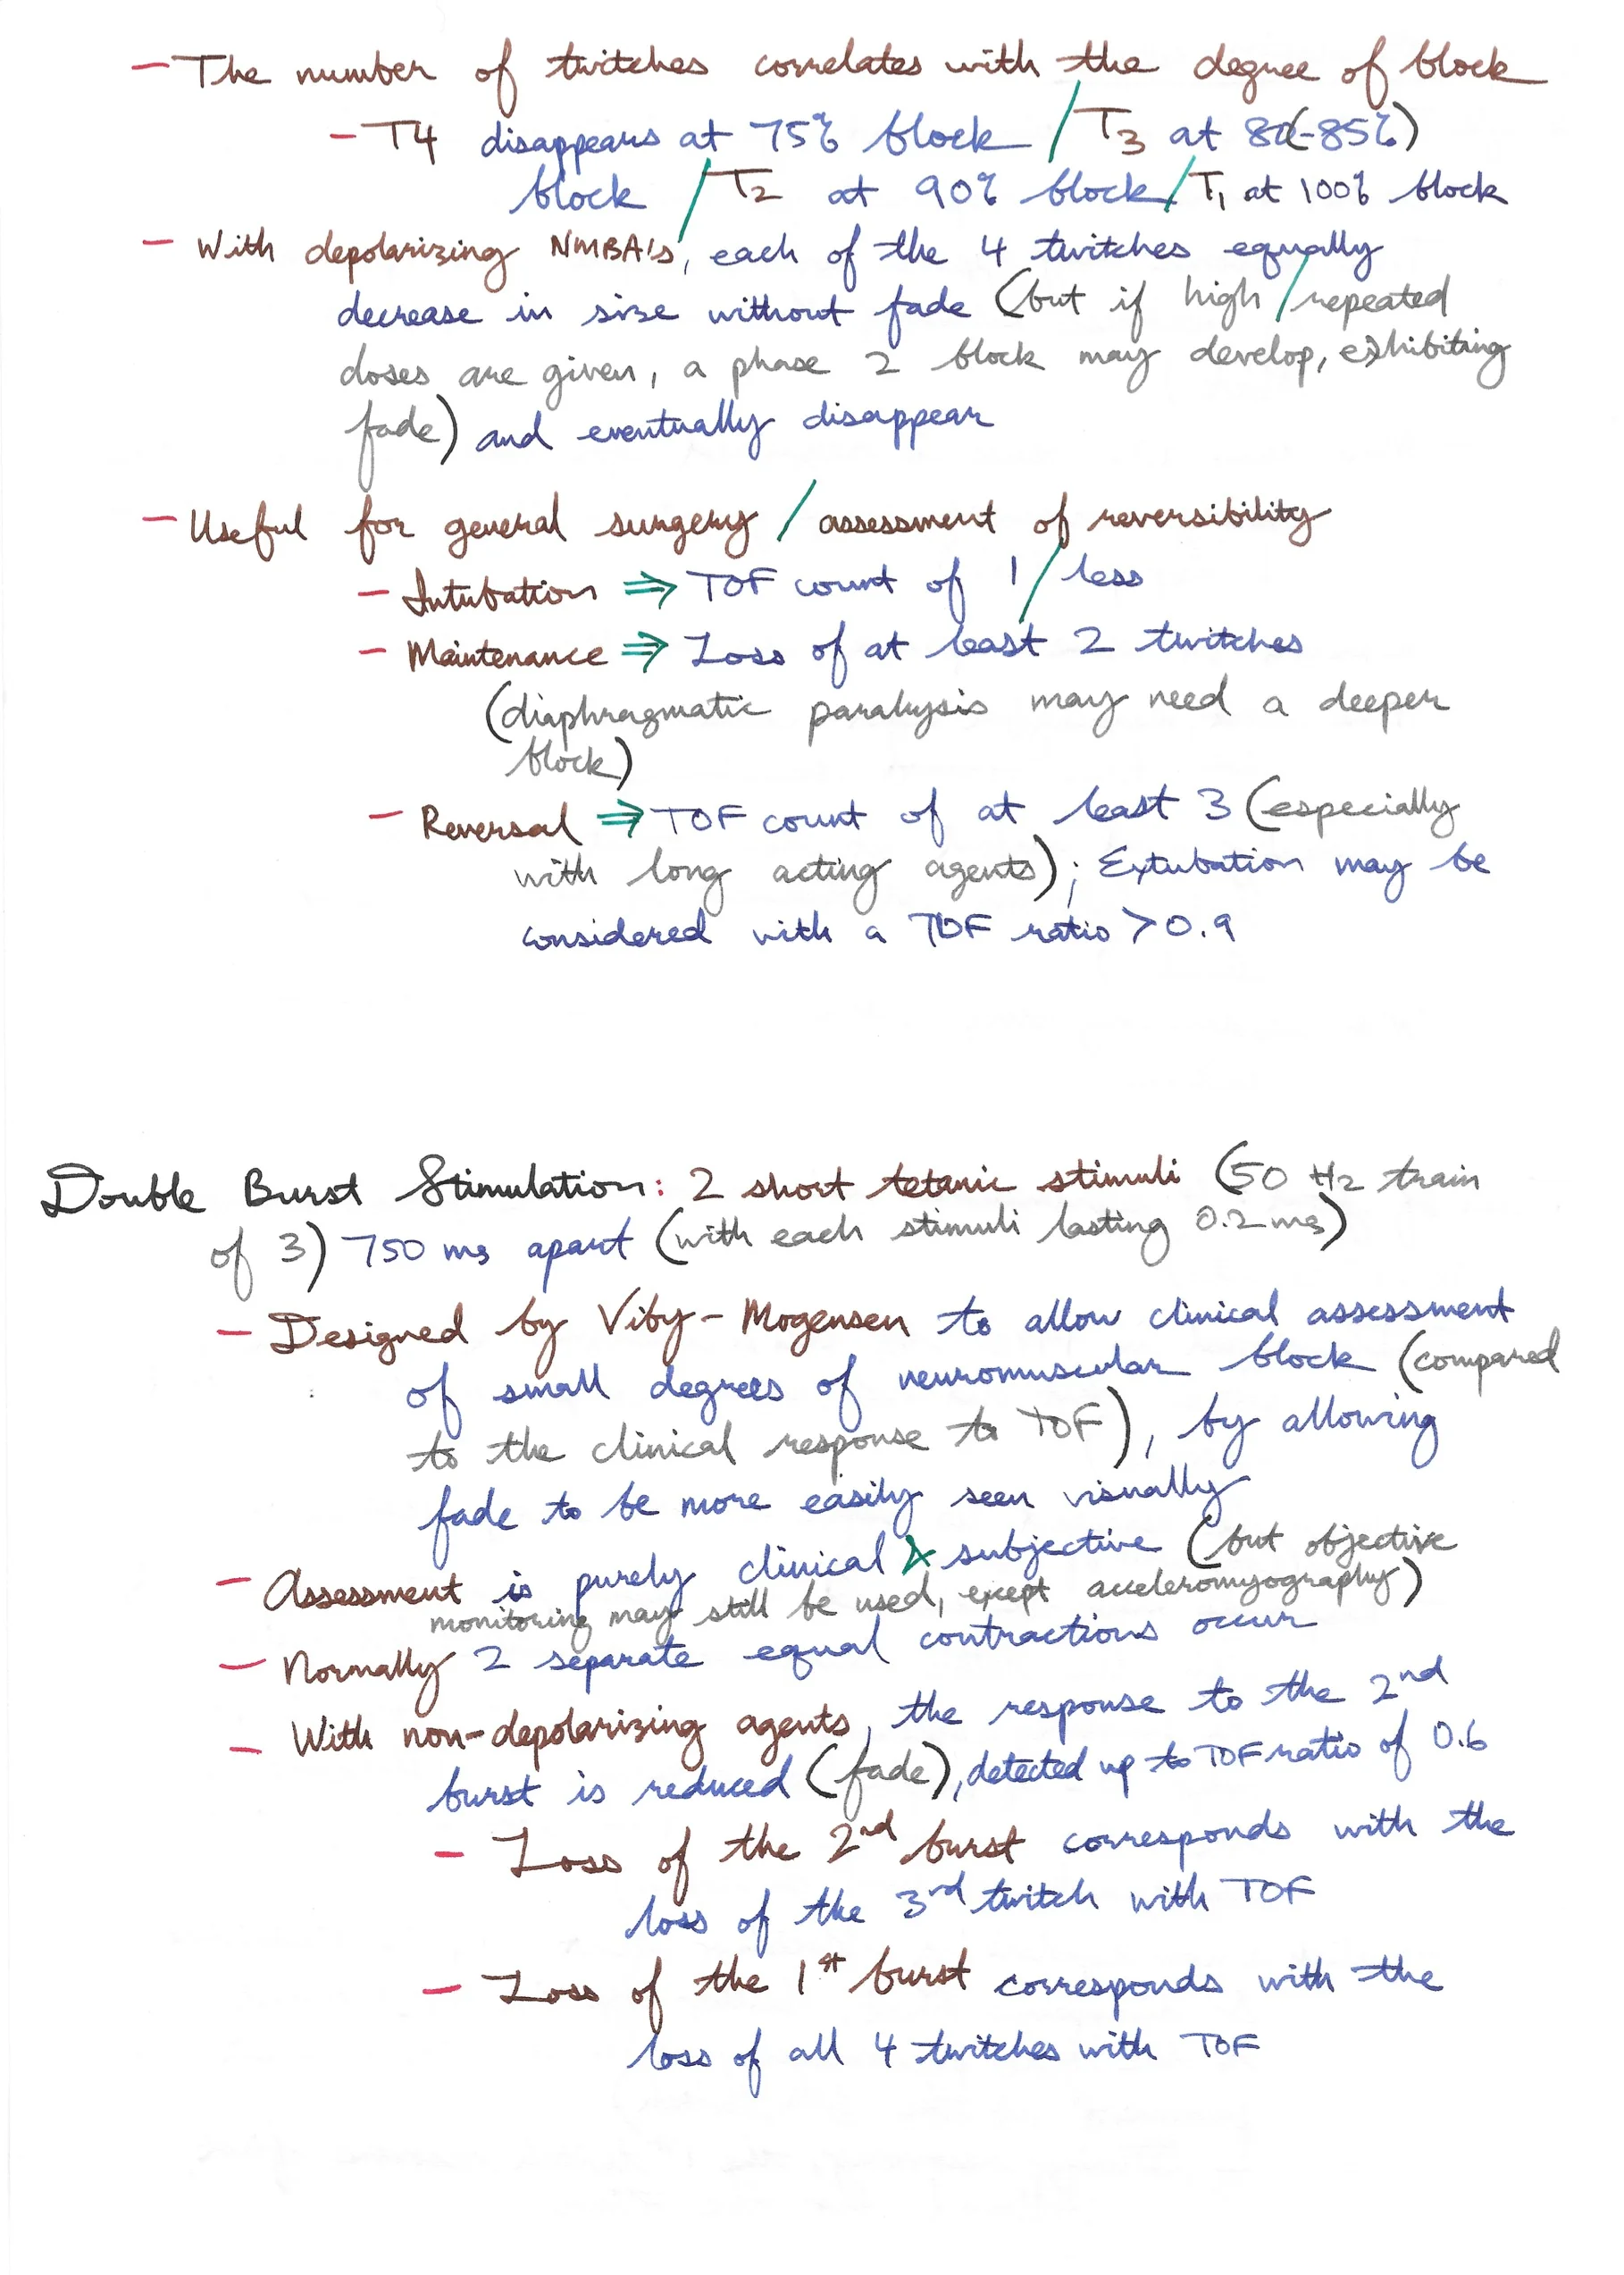 - The number of twitches correlates with the degree of block
- T4 disappears at 75% block / T3 at 80(-85%)
block / T2 at 90% block / T1 at 100% block
- With depolarizing NMBA's, each of the 4 twitches equally
decrease in size without fade (but if high / repeated
doses are given, a phase 2 block may develop, exhibiting
fade) and eventually disappear
- Useful for general surgery / assessment of reversibility
- Intubation ⇒ TOF count of 1 / less
- Maintenance ⇒ Loss of at least 2 twitches
(diaphragmatic paralysis may need a deeper
block)
- Reversal ⇒ TOF count of at least 3 (especially
with long acting agents); Extubation may be
considered with a TOF ratio > 0.9
Double Burst Stimulation: 2 short tetanic stimuli (50 Hz train
of 3) 750 ms apart (with each stimuli lasting 0.2 ms)
- Designed by Viby-Mogensen to allow clinical assessment
of small degrees of neuromuscular block (compared
to the clinical response to TOF), by allowing
fade to be more easily seen visually
- Assessment is purely clinical & subjective (but objective
monitoring may still be used, except acceleromyography)
- Normally 2 separate equal contractions occur
- With non-depolarizing agents, the response to the 2nd
burst is reduced (fade), detected up to TOF ratio of 0.6
- Loss of the 2nd burst corresponds with the
loss of the 3rd twitch with TOF
- Loss of the 1st burst corresponds with the
loss of all 4 twitches with TOF